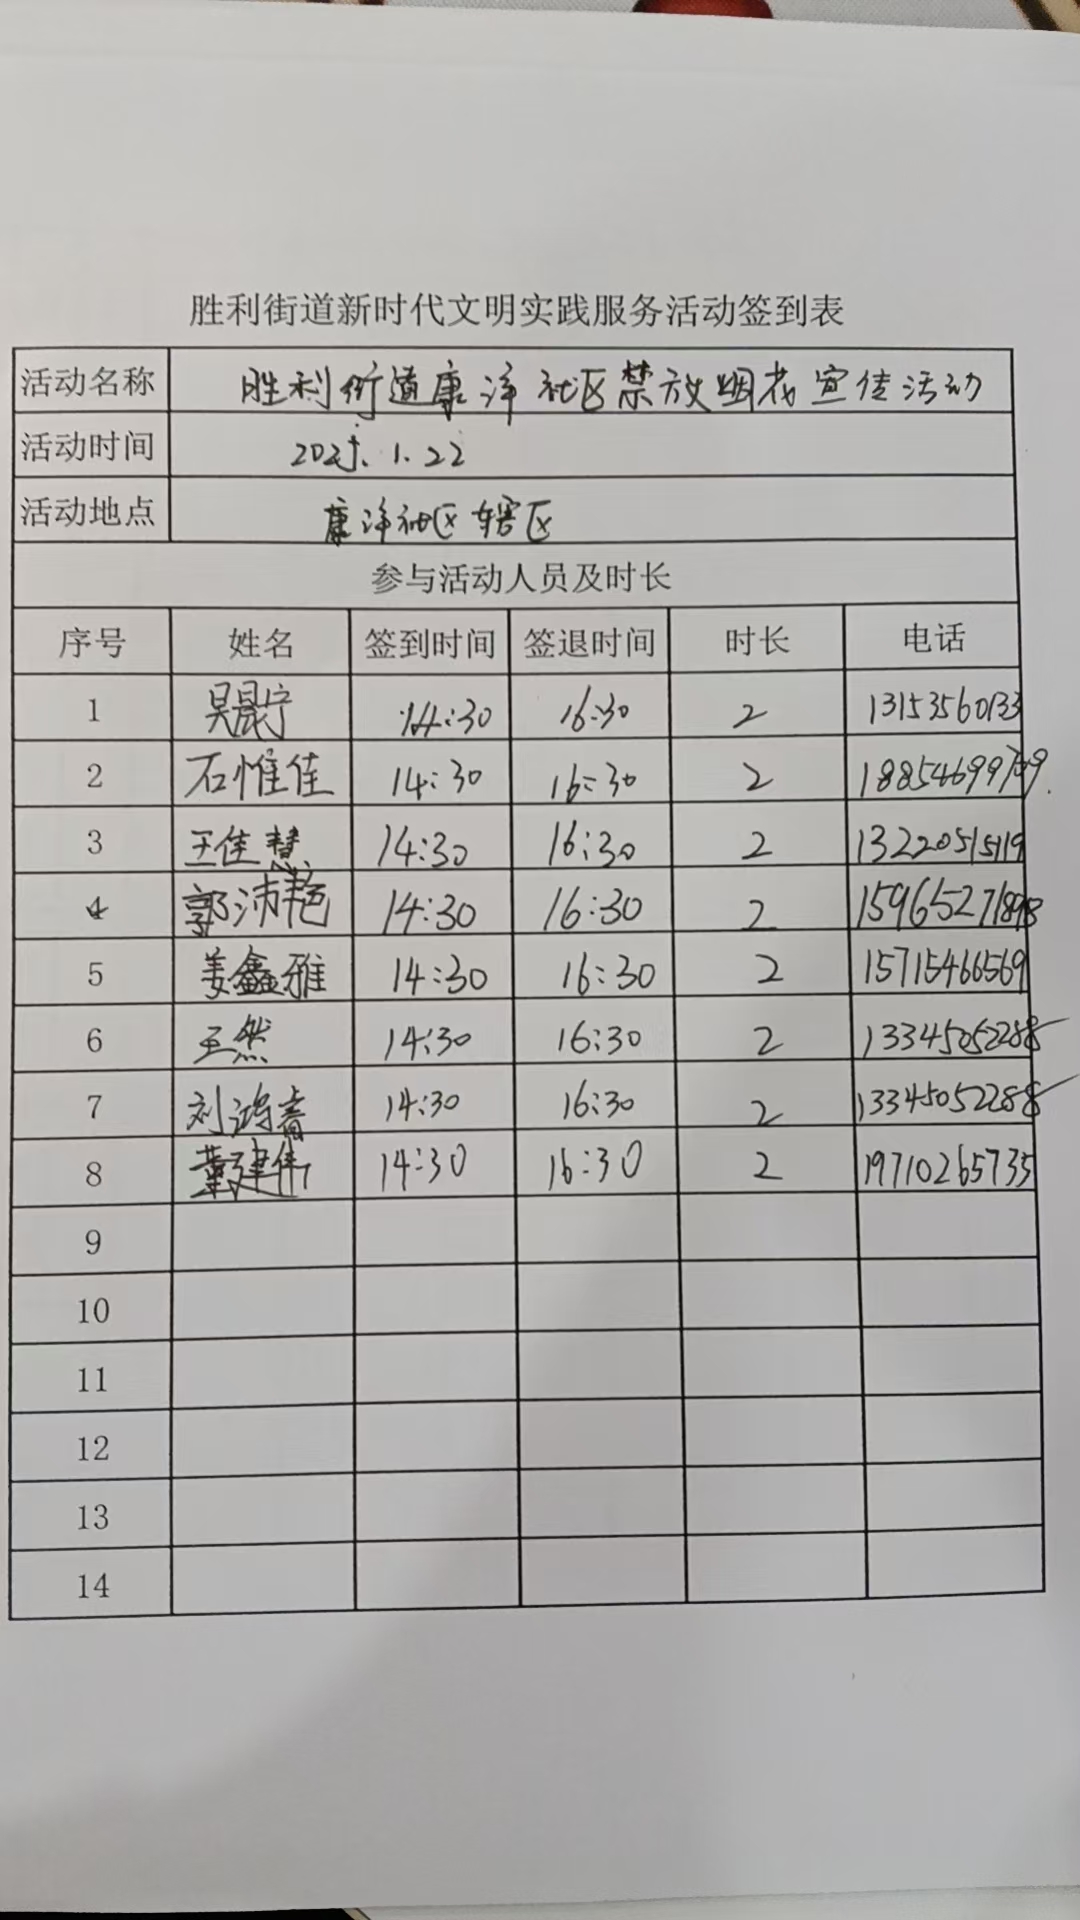 胜利街道新时代文明实践服务活动签到表
活动名称 胜利街道康洋社区禁放烟花宣传活动
活动时间 2025.1.22
活动地点 康洋社区辖区
参与活动人员及时长
序号 姓名 签到时间 签退时间 时长 电话
1 吴晟宁 14:30 16:30 2 13153560133
2 石惟佳 14:30 16:30 2
3 王佳慧 14:30 16:30 2 13220515119
4 郭沛艳 14:30 16:30 2
5 姜鑫雅 14:30 16:30 2 15715466569
6 王然 14:30 16:30 2 13345052288
7 14:30 16:30 2 13345052288
8 董建伟 14:30 16:30 2 19710265735
9
10
11
12
13
14